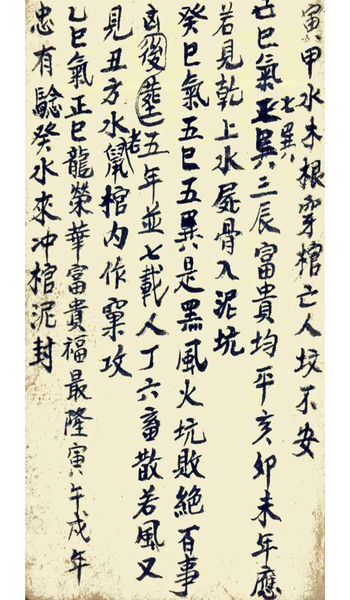 寅甲水木根穿棺亡人坟不安
七巽
己巳氣正巽三辰富貴均平亥卯未年應
若見乾上水屍骨入泥坑
癸巳氣五巳五巽是黑風火坑敗絕百事
凶後葬五年並七載人丁六畜散若風又
老
見丑方水鼠棺內作窠攻
乙巳氣正巳龍榮華富貴福最隆寅午戌年
忠有驗癸水來冲棺泥封